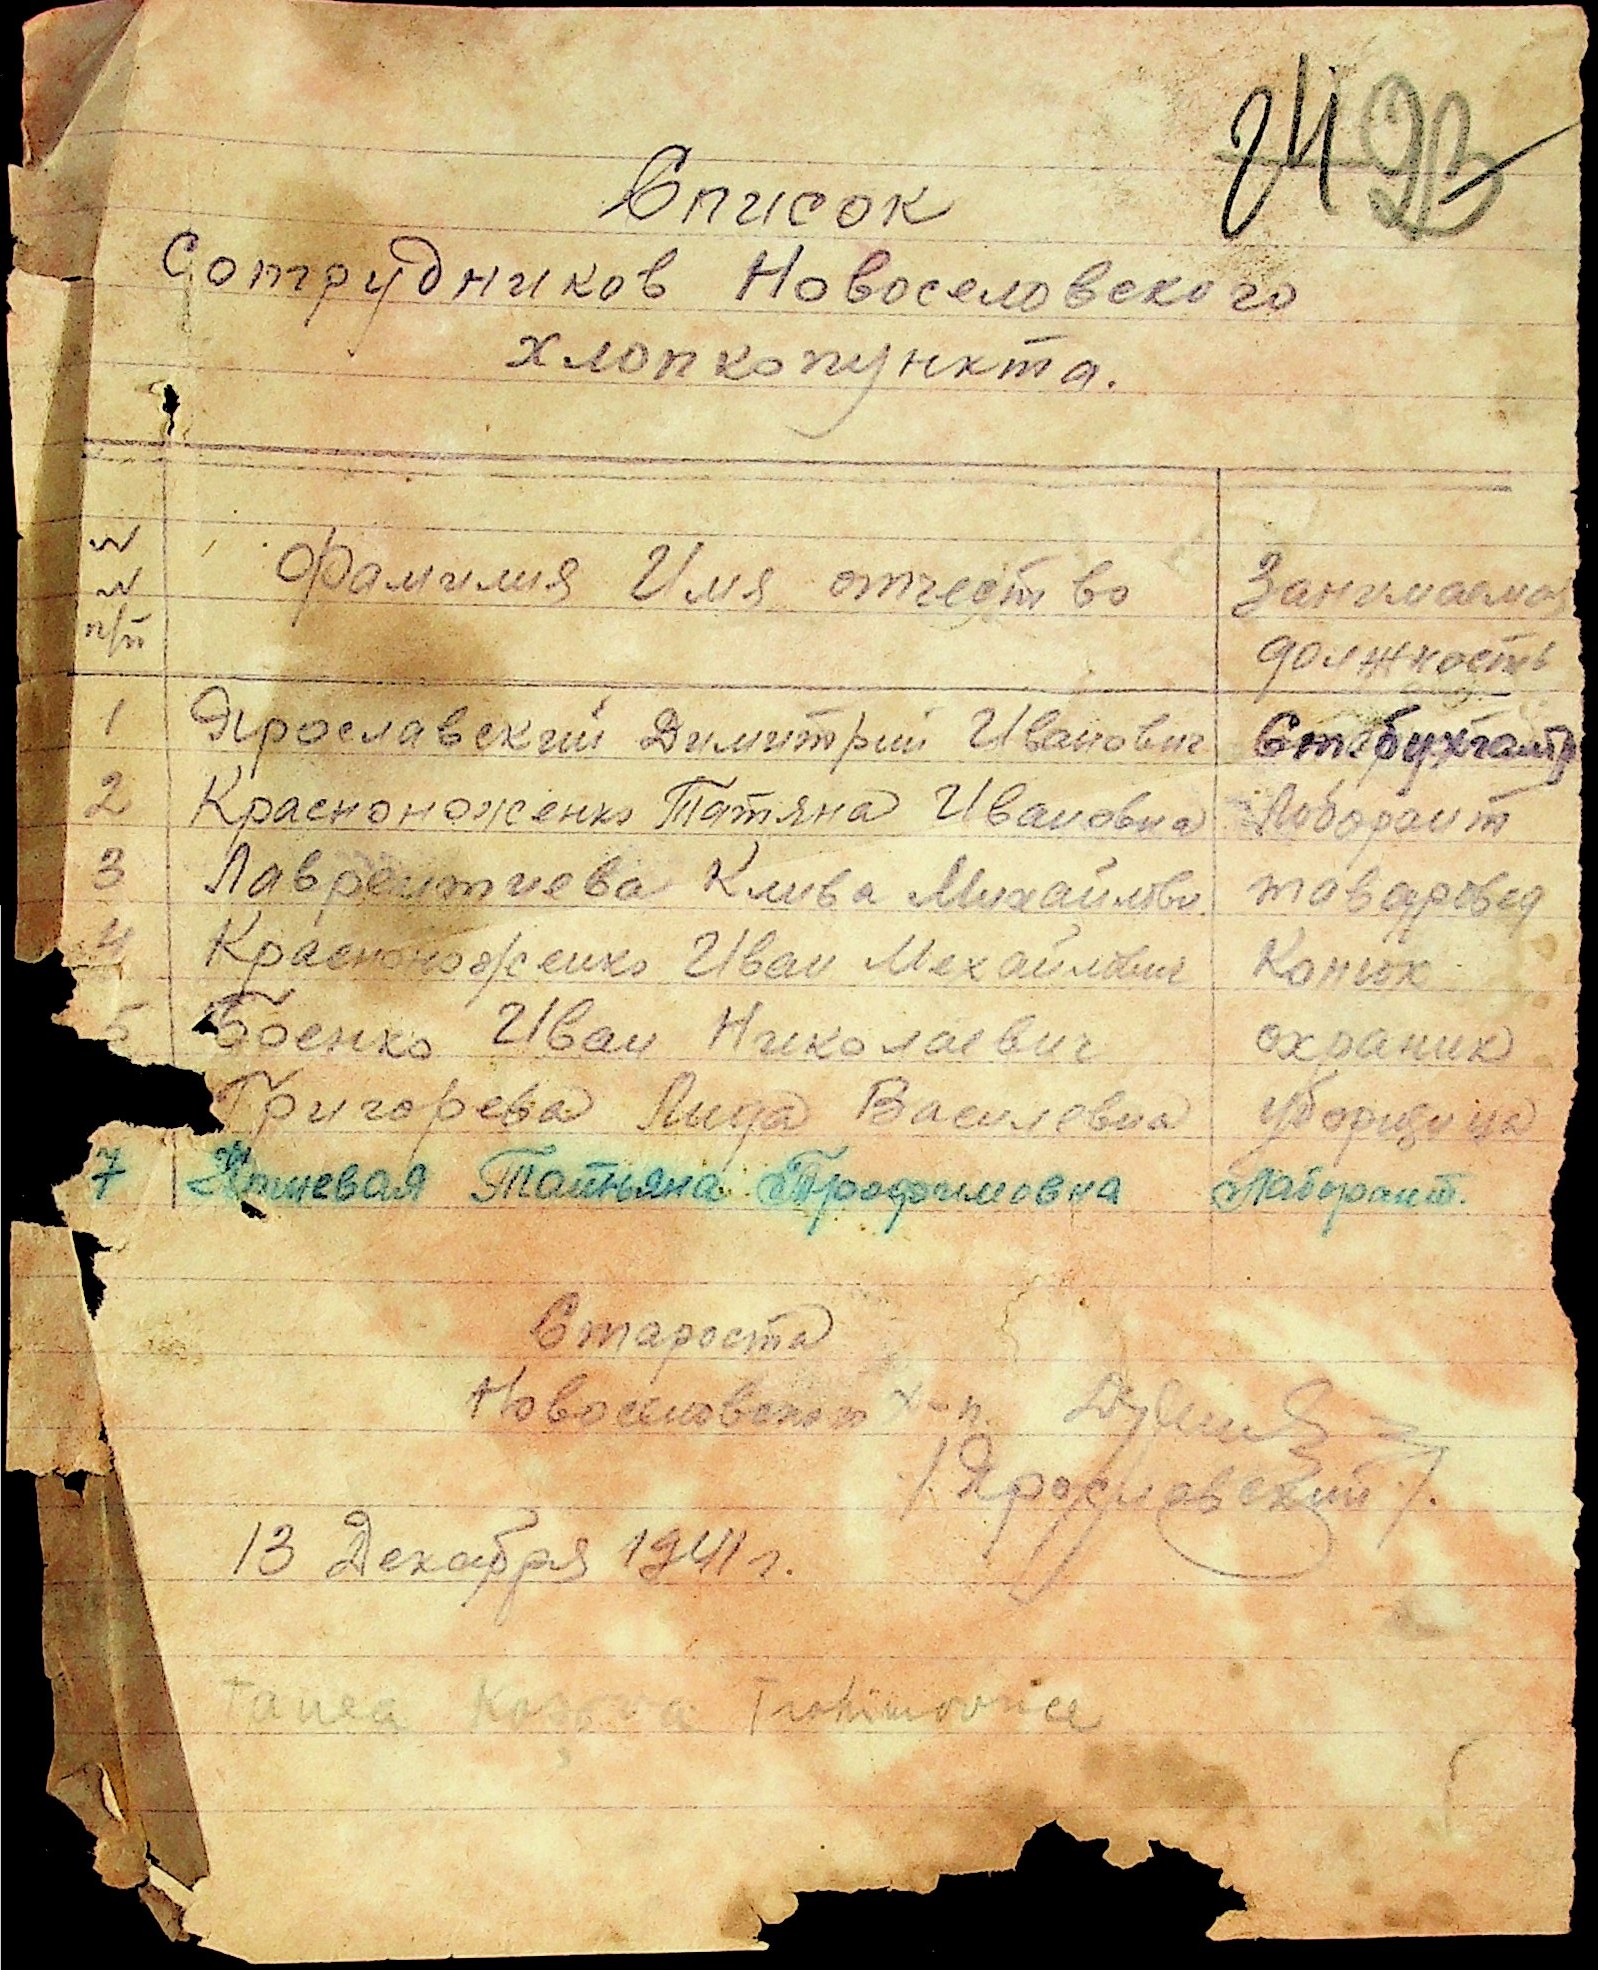 24 93
Список
Сотрудников Новоселовского
хлопкопункта.
N N п/п Фамилия Имя отчество Занимаемая должность
1 Ярославский Димитрий Иванович Ст бухгалтр
2 Красноноженко Татяна Ивановна Лоборант
3 Лаврентиева Клива Михайловн. товаровед
4 Красноноженко Иван Мехайлович Конюх
5 Боенко Иван Николаевич охраник
Григорева Лида Василевна уборщица
7 Татьяна Трофимовна Лаборант.
Староста
Новоселовског х-п.
/Ярославский/.
13 Декабря 1941 г.
Tanea Trohimovnice